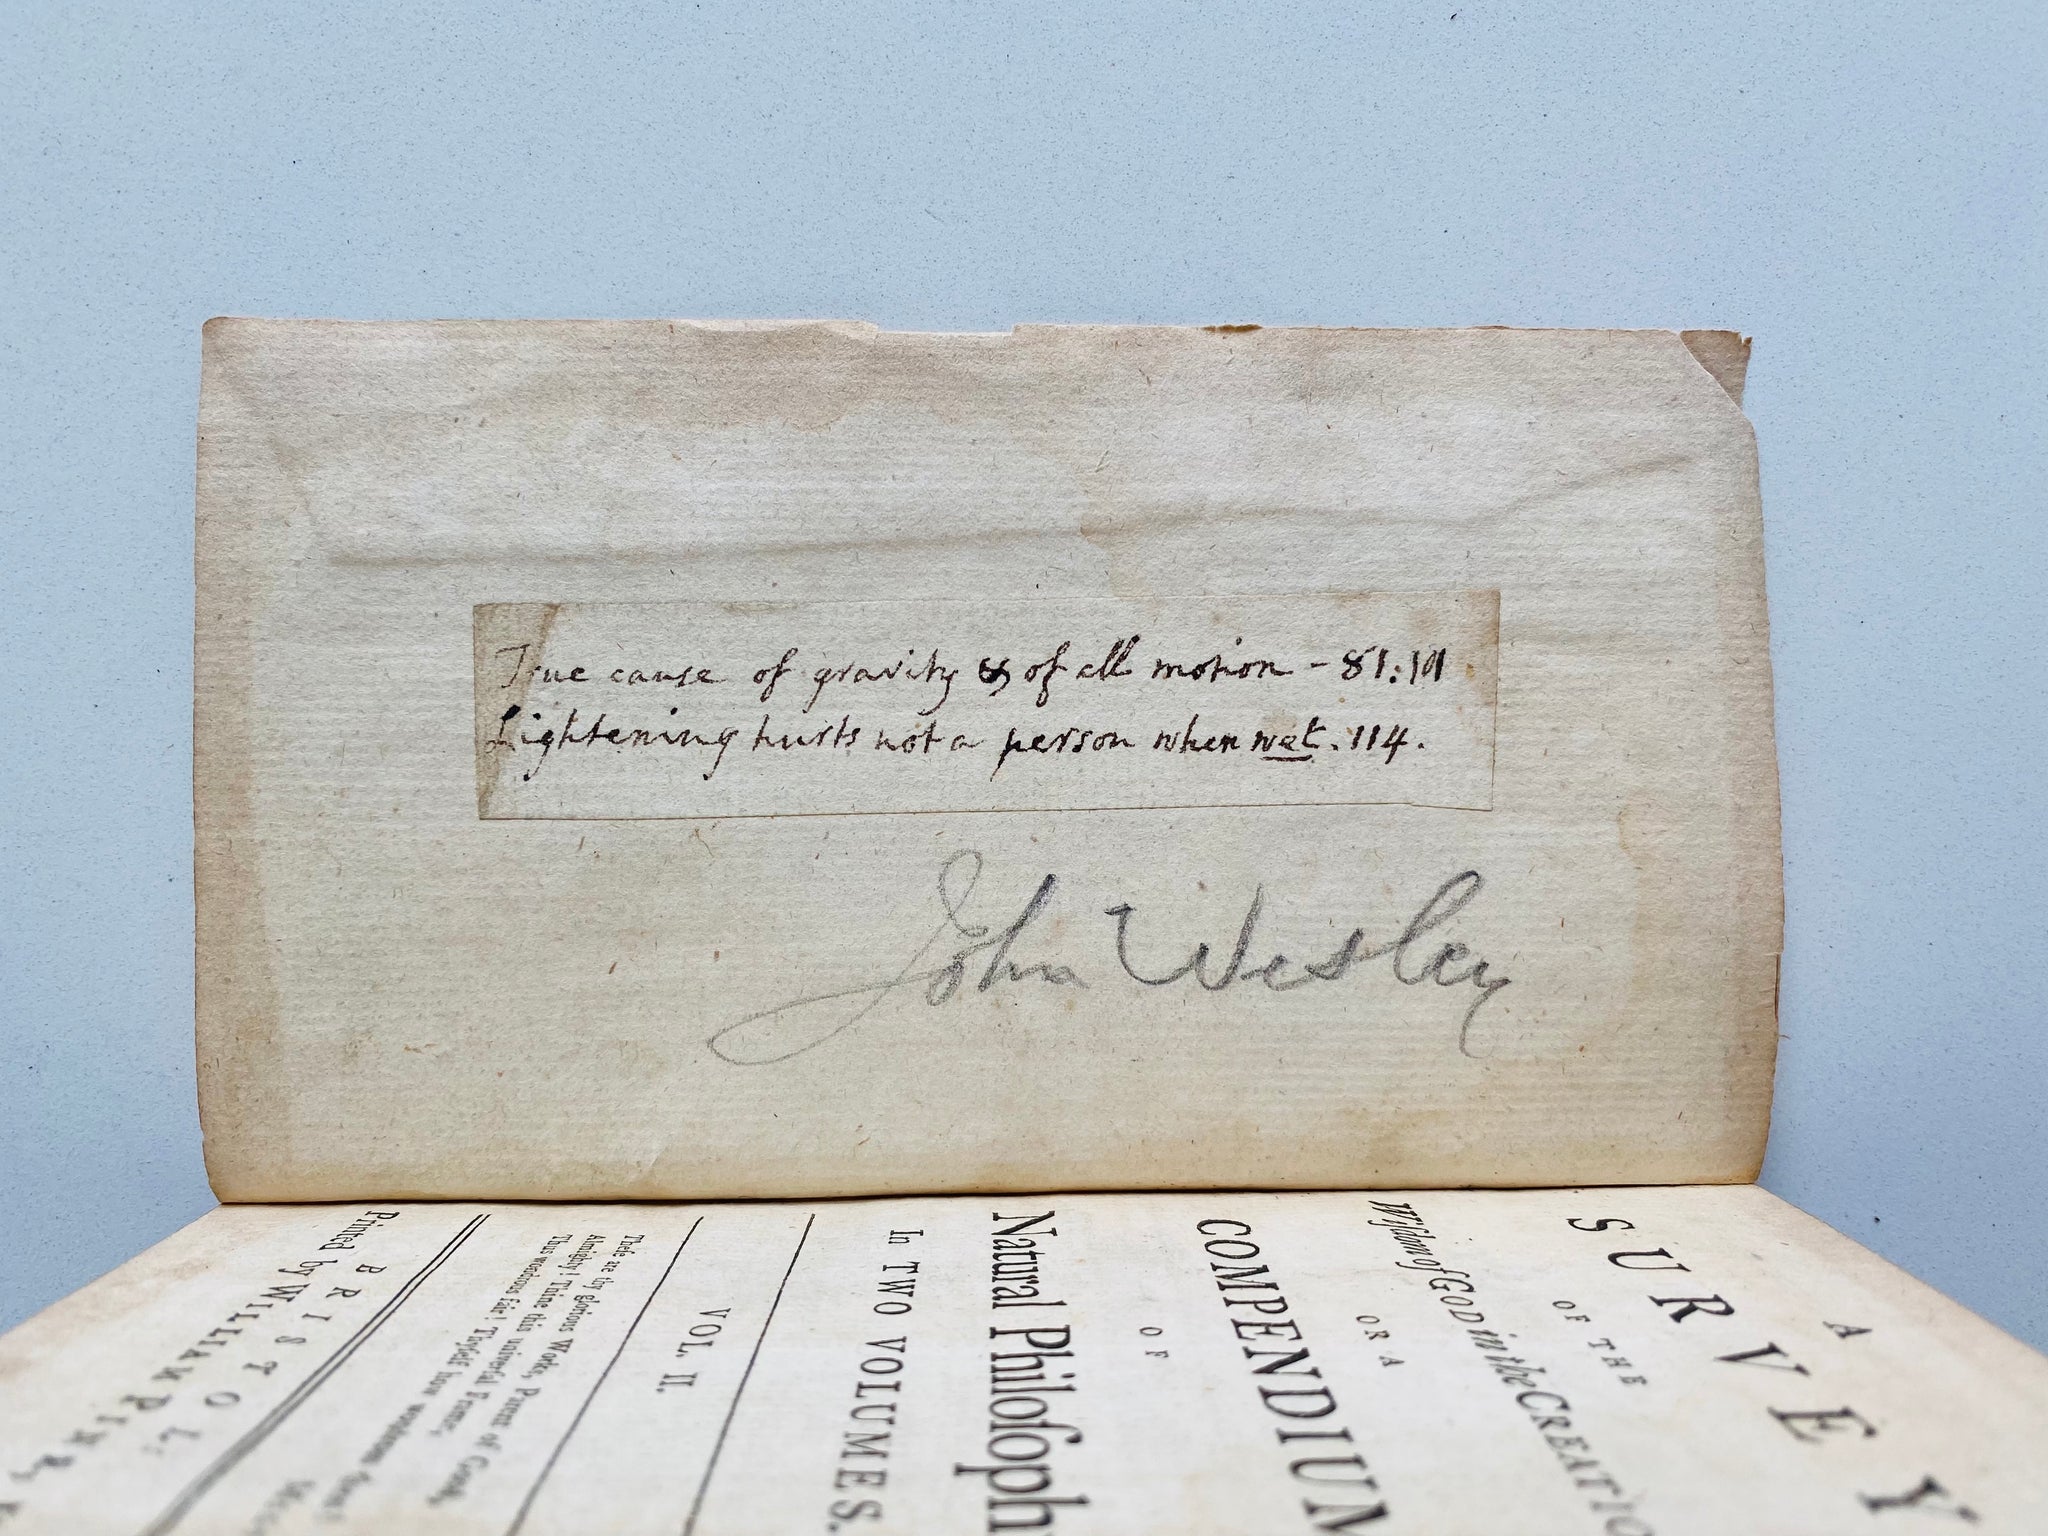 True cause of gravity & of all motion - 81:101
Lightening hurts not a person when wet. 114.
John Wesley
A
SURVEY
OF THE
Wisdom of GOD in the
OR A
COMPENDIUM
OF
Natural
In TWO VOLUMES.
VOL. II.
These are thy glorious Works, Parent of Good,
Almighty! Thine this universal Frame,
Thus wondrous fair! Thyself how wondrous then!
BRISTOL:
Printed by WILLIAM PINE,